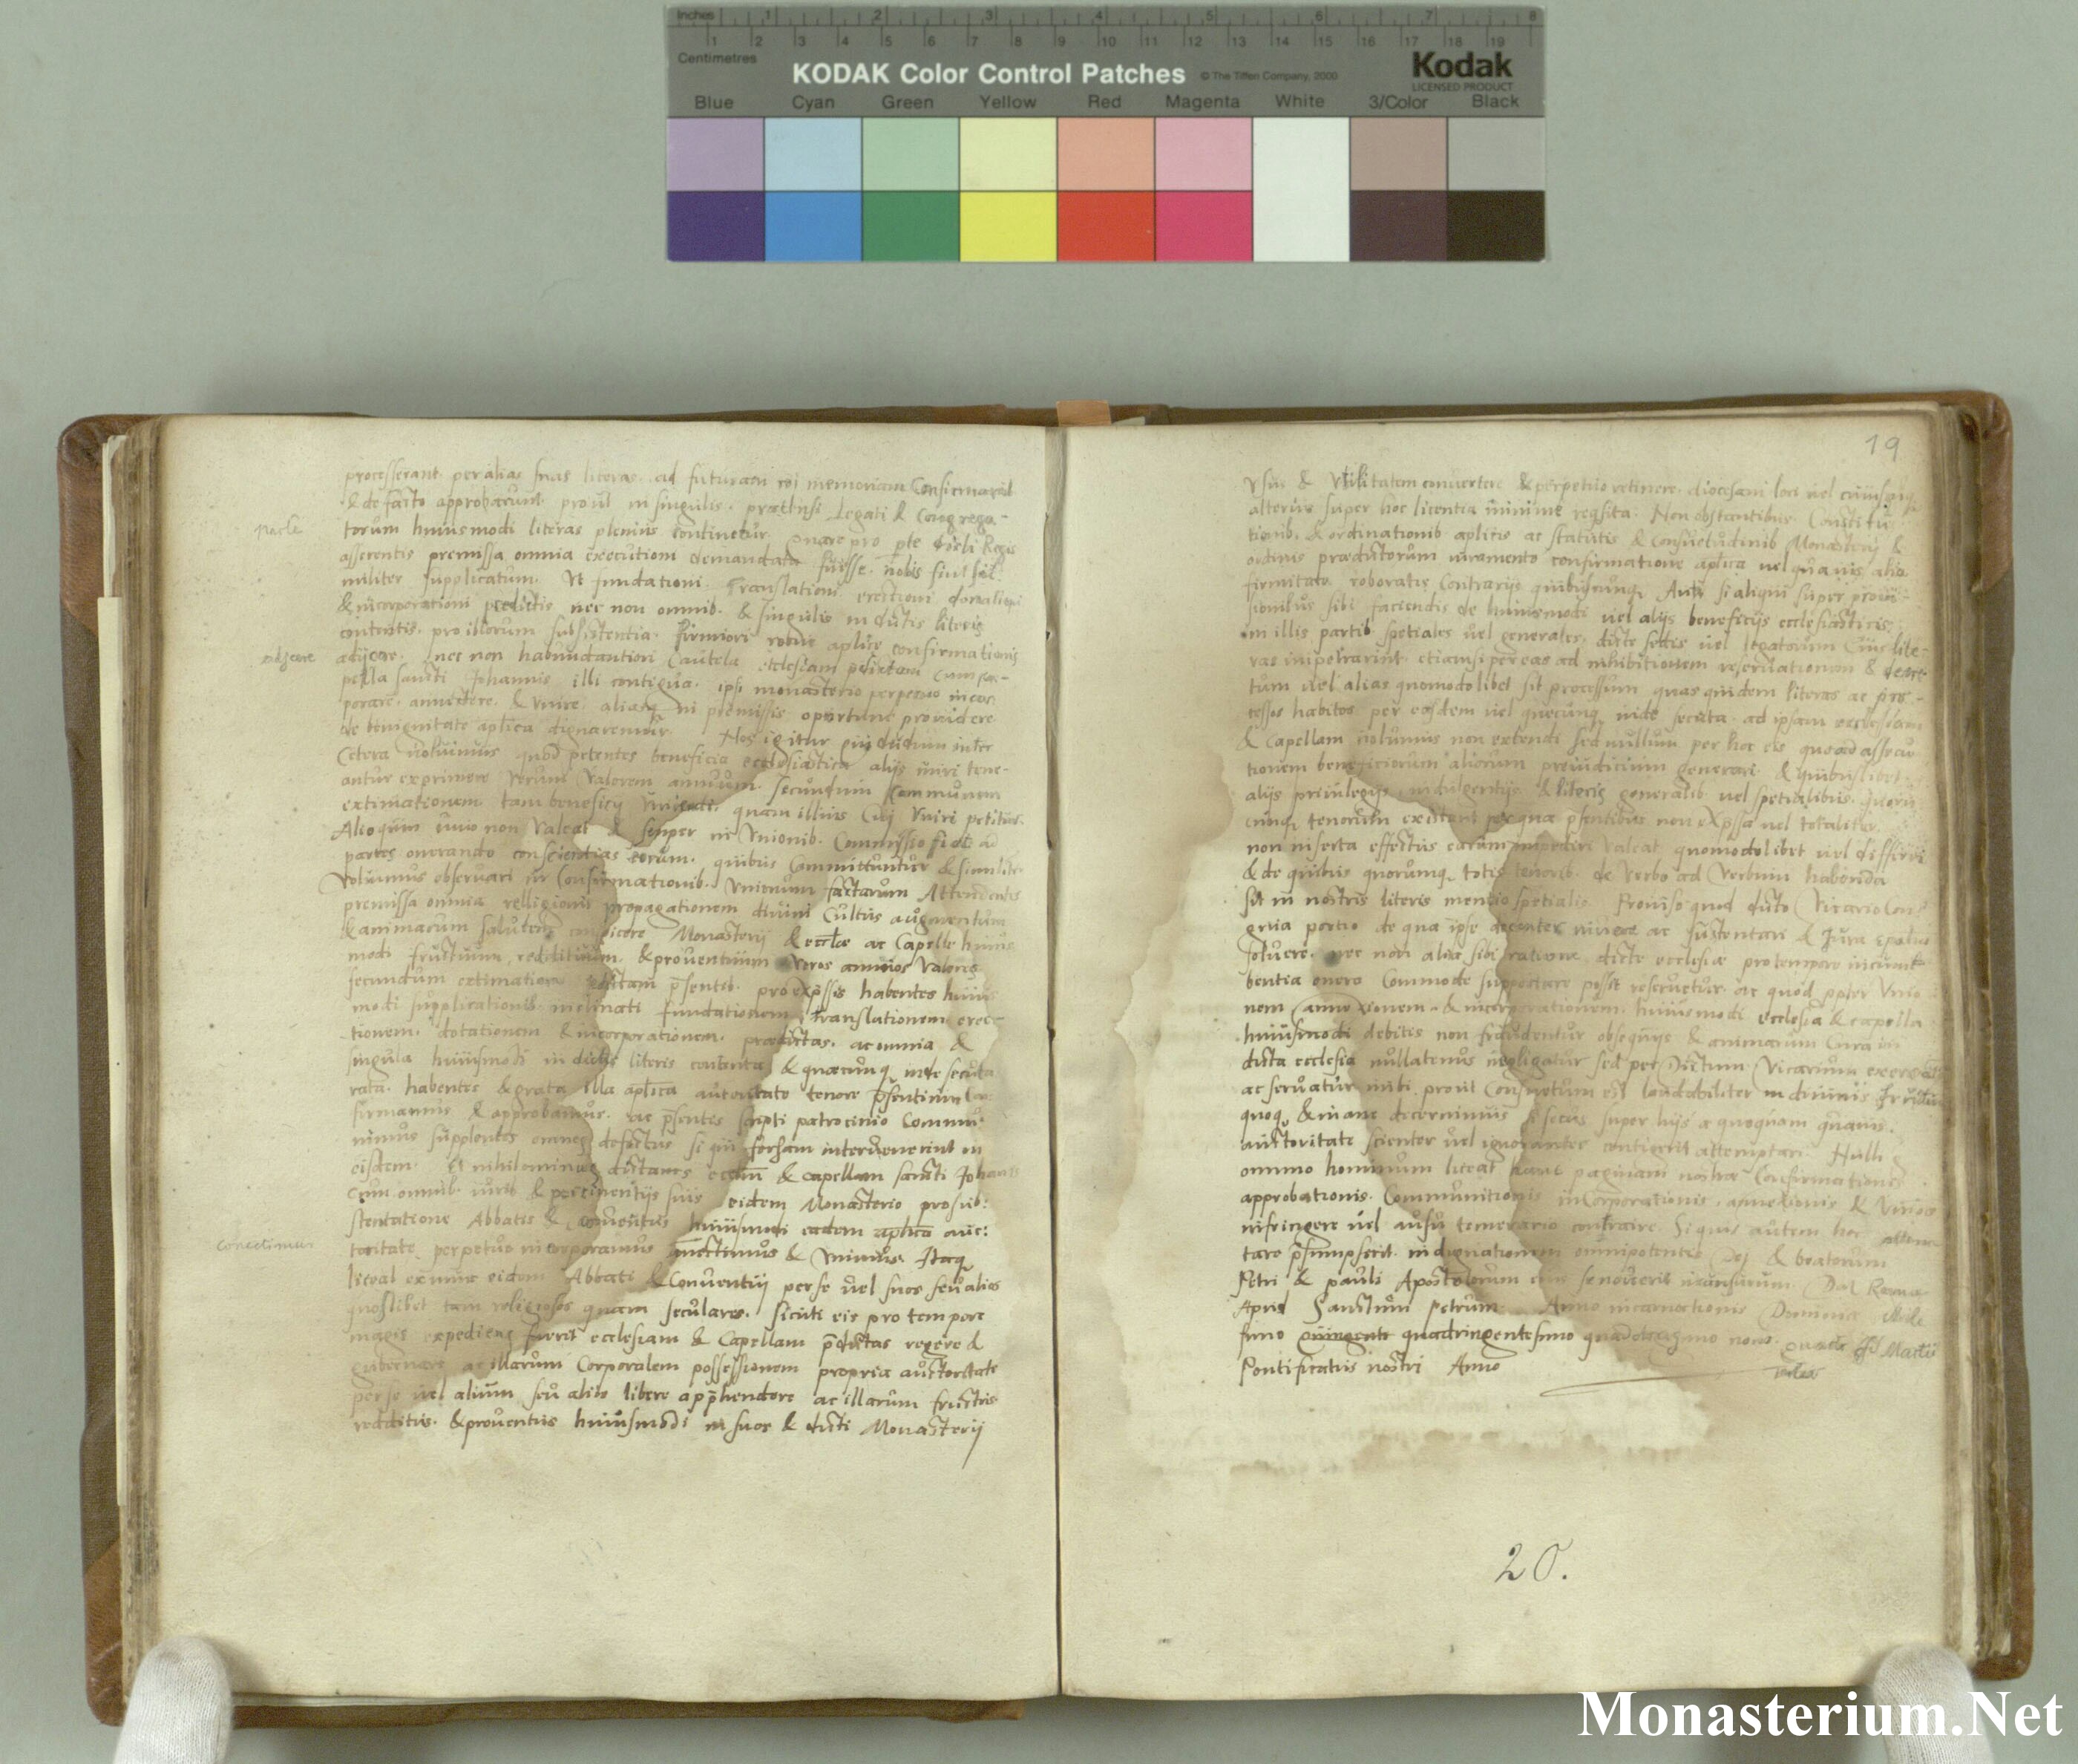 Inches 1 2 3 4 5 6 7 8
Centimetres 1 2 3 4 5 6 7 8 9 10 11 12 13 14 15 16 17 18 19
KODAK Color Control Patches © The Tiffen Company, 2000 Kodak
LICENSED PRODUCT
Blue Cyan Green Yellow Red Magenta White 3/Color Black
processerant per alias suas literas ad futuram rei memoriam Confirmarunt
& de facto approbarunt prout in singulis Legati & Congrega-
torum huiusmodi literas plenius continetur Quare pro pte Regis
asserentis premissa omnia executioni demandata fuisse nobis fuit hu-
militer supplicatum Ut fundationi Translationi erectioni donationi
& incorporationi predictis nec non omnib. & singulis in dictis literis
contentis pro illorum subsistentia firmiori robur aplice confirmationis
adijcere nec non habundantiori Cautela ecclesiam cum ca-
pella sancti Johannis illi contigua ipsi monasterio perpetuo incor
porare annectere & unire aliasq in premissis oportune providere
de benignitate aplica dignaremur Nos igitur qui dudum inter
Cetera voluimus quod petentes beneficia ecclesiastica alijs uniri tene-
antur exprimere verum valorem annuum secundum Communem
extimationem tam beneficij uniendi quam illius Cui Uniri petitur
Alioquin unio non Valeat & semper in Unionib. Commissio fiat ad
partes onerando conscientias eorum quibus Committuntur & similiter
Volumus observari in Confirmationib. Unionum factarum Attendentes
premissa omnia relligionis propagationem divini Cultus augmentum
& animarum salutem Monasterij & eccłæ ac Capelle huius
modi fructuum reddituum & proventuum Veros annuos Valores
secundum extimationem psentib. pro expssis habentes huius
modi supplicationib. inclinati fundationem Translationem erec-
tionem dotationem & incorporationem prædictas ac omnia &
singula huiusmodi in dictis literis contenta & quæcunq inde secuta
rata habentes & grata illa aplica autoritate tenore psentium con
firmamus & approbamus ac psentis scripti patrocinio Commu-
nimus supplentes omnes defectus si qui forsan intervenerint in
eisdem Et nihilominus & capellam sancti Johannis
cum omnib. iurib. & pertinentijs suis eidem Monasterio pro sub:
stentatione Abbatis & Conventus huiusmodi eadem aplica auc:
toritate perpetuo incorporamus & Unimus Itaq
liceat exnunc eidem Abbati & Conventui per se vel suos seu alios
quoslibet tam religiosos quam seculares sicuti eis pro tempore
magis expediens fuerit ecclesiam & Capellam pdictas regere &
gubernare ac illarum Corporalem possessionem propria auctoritate
per se vel alium seu alios libere apphendere ac illarum fructus
redditus & proventus huiusmodi in suos & dicti Monasterij
adijcere
19
Usus & Utilitatem convertere & perpetuo retinere diocesani loci vel cuiusq
alterius super hoc licentia minime reqsita Non obstantibus Constitu
tionib. & ordinationib aplicis ac statutis & consuetudinib Monasterij &
ordinis prædictorum iuramento confirmatione aplica vel quavis alia
firmitate roboratis Contrarijs quibuscunq Aut si aliqui super provi-
sionibus sibi faciendis de huiusmodi vel alijs beneficijs ecclesiasticis
in illis partib. spetiales vel generales dicte sedis vel legatorum eius lite-
ras impetrarint etiamsi per eas ad inhibitionem reservationem & decre
tum vel alias quomodolibet sit processum quas quidem literas ac pro-
cessos habitos per easdem vel quecunq inde secuta ad ipsam ecclesiam
& Capellam volumus non extendi sed nullum per hoc eis quoad assecu
tionem beneficiorum aliorum preiudicium generari & quibuslibet
alijs privilegijs indulgentijs & literis generalib. vel spetialibus quoru
cunq tenorum existant per quæ psentibus non expssa vel totaliter
non inserta effectus earum impediri valeat quomodolibet vel differri
& de quibus quorumq totis tenorib. de verbo ad verbum habenda
sit in nostris literis mentio spetialis Proviso quod dicto Vicario con
grua portio de qua ipse decenter vivere ac sustentari & Jura
solvere nec non alia sibi ratione dicte ecclesiæ pro tempore incum
bentia onera Commode supportare possit reservetur ac quod ppter Unio
nem annexionem & incorporationem huiusmodi ecclesia & capella
huiusmodi debitis non fraudentur obsequijs & animarum Cura in
dicta ecclesia nullatenus negligatur sed per Dictum Vicarium
ac servatur inibi prout Consuetum est laudabiliter in divinis Irritum
quoq & inane decernimus si secus super hijs a quoquam quavis
auctoritate scienter vel ignoranter contigerit attemptari Nulli
omnino hominum liceat hanc paginam nostræ Confirmationis
approbationis Communitionis inCorporationis annexionis & Unionis
infringere vel ausu temerario contraire Si quis autem hoc attem
tare psumpserit indignationem omnipotentis Dei & beatorum
Petri & pauli Apostolorum eius se noverit incursurum Dat Romæ
Apud Sanctum petrum Anno incarnationis Dominicæ Mille
simo quingente quadringentesimo quadragesimo nono Martii
Pontificatus nostri Anno
20.
Monasterium.Net